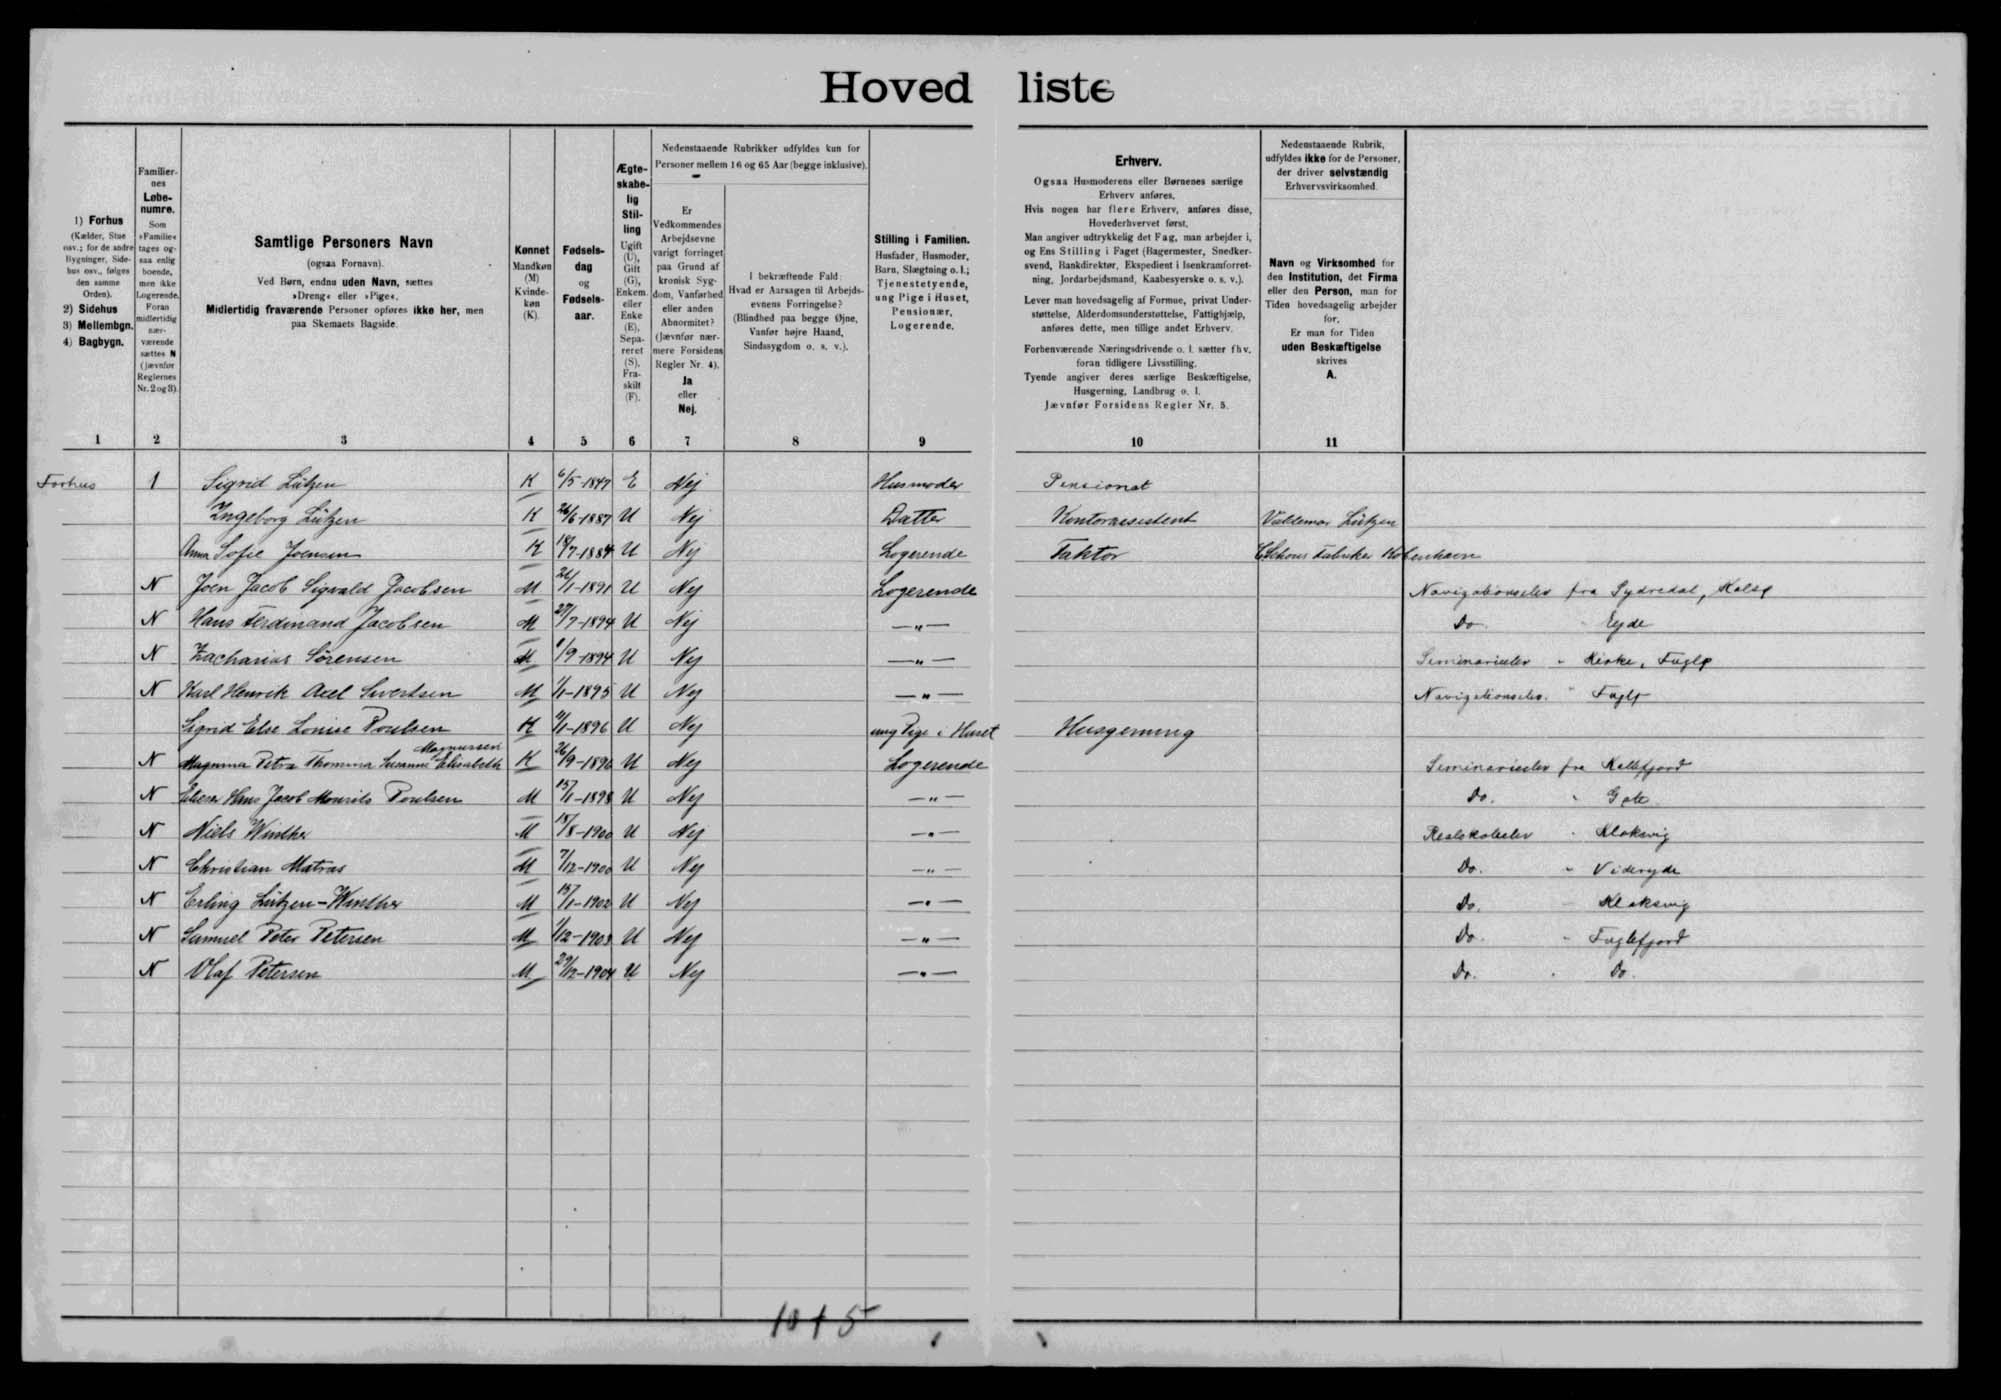 Hoved liste
1) Forhus
(Kælder, Stue
osv.; for de andre
Bygninger, Side-
hus osv., følges
den samme
Orden).
2) Sidehus
3) Mellembgn.
4) Bagbygn.
Familier-
nes
Løbe-
numre.
Som
»Familie«
tages og-
saa enlig
boende,
men ikke
Logerende.
Foran
midlertidig
nær-
værende
sættes N
(jævnfør
Reglernes
Nr. 2 og 3).
Samtlige Personers Navn
(ogsaa Fornavn).
Ved Børn, endnu uden Navn, sættes
»Dreng« eller »Pige«.
Midlertidig fraværende Personer opføres ikke her, men
paa Skemaets Bagside.
Kønnet
Mandkøn
(M)
Kvinde-
køn
(K).
Fødsels-
dag
og
Fødsels-
aar.
Ægte-
skabe-
lig
Stil-
ling
Ugift
(U),
Gift
(G),
Enkem.
eller
Enke
(E),
Sepa-
reret
(S),
Fra-
skilt
(F).
Nedenstaaende Rubrikker udfyldes kun for
Personer mellem 16 og 65 Aar (begge inklusive).
Er
Vedkommendes
Arbejdsevne
varigt forringet
paa Grund af
kronisk Syg-
dom, Vanførhed
eller anden
Abnormitet?
(Jævnfør nær-
mere Forsidens
Regler Nr. 4).
Ja
eller
Nej.
I bekræftende Fald:
Hvad er Aarsagen til Arbejds-
evnens Forringelse?
(Blindhed paa begge Øjne,
Vanfør højre Haand,
Sindssygdom o. s. v.).
Stilling i Familien.
Husfader, Husmoder,
Barn, Slægtning o. l.;
Tjenestetyende,
ung Pige i Huset,
Pensionær,
Logerende.
Erhverv.
Ogsaa Husmoderens eller Børnenes særlige
Erhverv anføres.
Hvis nogen har flere Erhverv, anføres disse,
Hovederhvervet først.
Man angiver udtrykkelig det Fag, man arbejder i,
og Ens Stilling i Faget (Bagermester, Snedker-
svend, Bankdirektør, Ekspedient i Isenkramforret-
ning, Jordarbejdsmand, Kaabesyerske o. s. v.).
Lever man hovedsagelig af Formue, privat Under-
støttelse, Alderdomsunderstøttelse, Fattighjælp,
anføres dette, men tillige andet Erhverv.
Forhenværende Næringsdrivende o. l. sætter fhv.
foran tidligere Livsstilling.
Tyende angiver deres særlige Beskæftigelse,
Husgerning, Landbrug o. l.
Jævnfør Forsidens Regler Nr. 5.
Nedenstaaende Rubrik,
udfyldes ikke for de Personer,
der driver selvstændig
Erhvervsvirksomhed.
Navn og Virksomhed for
den Institution, det Firma
eller den Person, man for
Tiden hovedsagelig arbejder
for.
Er man for Tiden
uden Beskæftigelse
skrives
A.
1 2 3 4 5 6 7 8 9 10 11
Forhus 1 Sigrid Lützen K 6/5-1847 E Nej Husmoder Pensionat
Ingeborg Lützen K 26/6-1887 U Nej Datter Kontorassistent Valdemar Lützen
Anna Sofie Joensen K 18/7-1884 U Nej Logerende Faktor Fabriker København
N Joen Jacob Sigvald Jacobsen M 26/1-1891 U Nej Logerende Navigationselev fra Sydredal, Kalsø
N Hans Ferdinand Jacobsen M 27/7-1894 U Nej —„— Do " Ejde
N Zacharias Sörensen M /9-1894 U Nej —„— Seminarielev " Kirke, Fuglø
N Karl Henrik Axel Sivertsen M 1/1-1895 U Nej —„— Navigationselev. " Fuglø
Sigrid Else Louise Poulsen K /1-1896 U Nej ung Pige i Huset Husgerning
Magnussen
N Magnina Petra Thomina Susanne Elisabeth K 26/9-1896 U Nej Logerende Seminarielev fra Kollefjord
N Hans Jacob Mourits Poulsen M 15/1-1898 U Nej —„— Do. " Gøte
N Niels Winther M 18/8-1900 U Nej —„— Realskoleelev " Klaksvig
N Christian Matras M 7/12-1900 U Nej —„— Do. " Viderejde
N Erling Lützen-Winther M 15/1-1902 U Nej —„— Do. " Klaksvig
N Samuel Peter Petersen M 1/12-1903 U Nej —„— Do. " Fuglefjord
N Olaf Petersen M 29/12-1904 U Nej —„— Do. " Do.
10+5